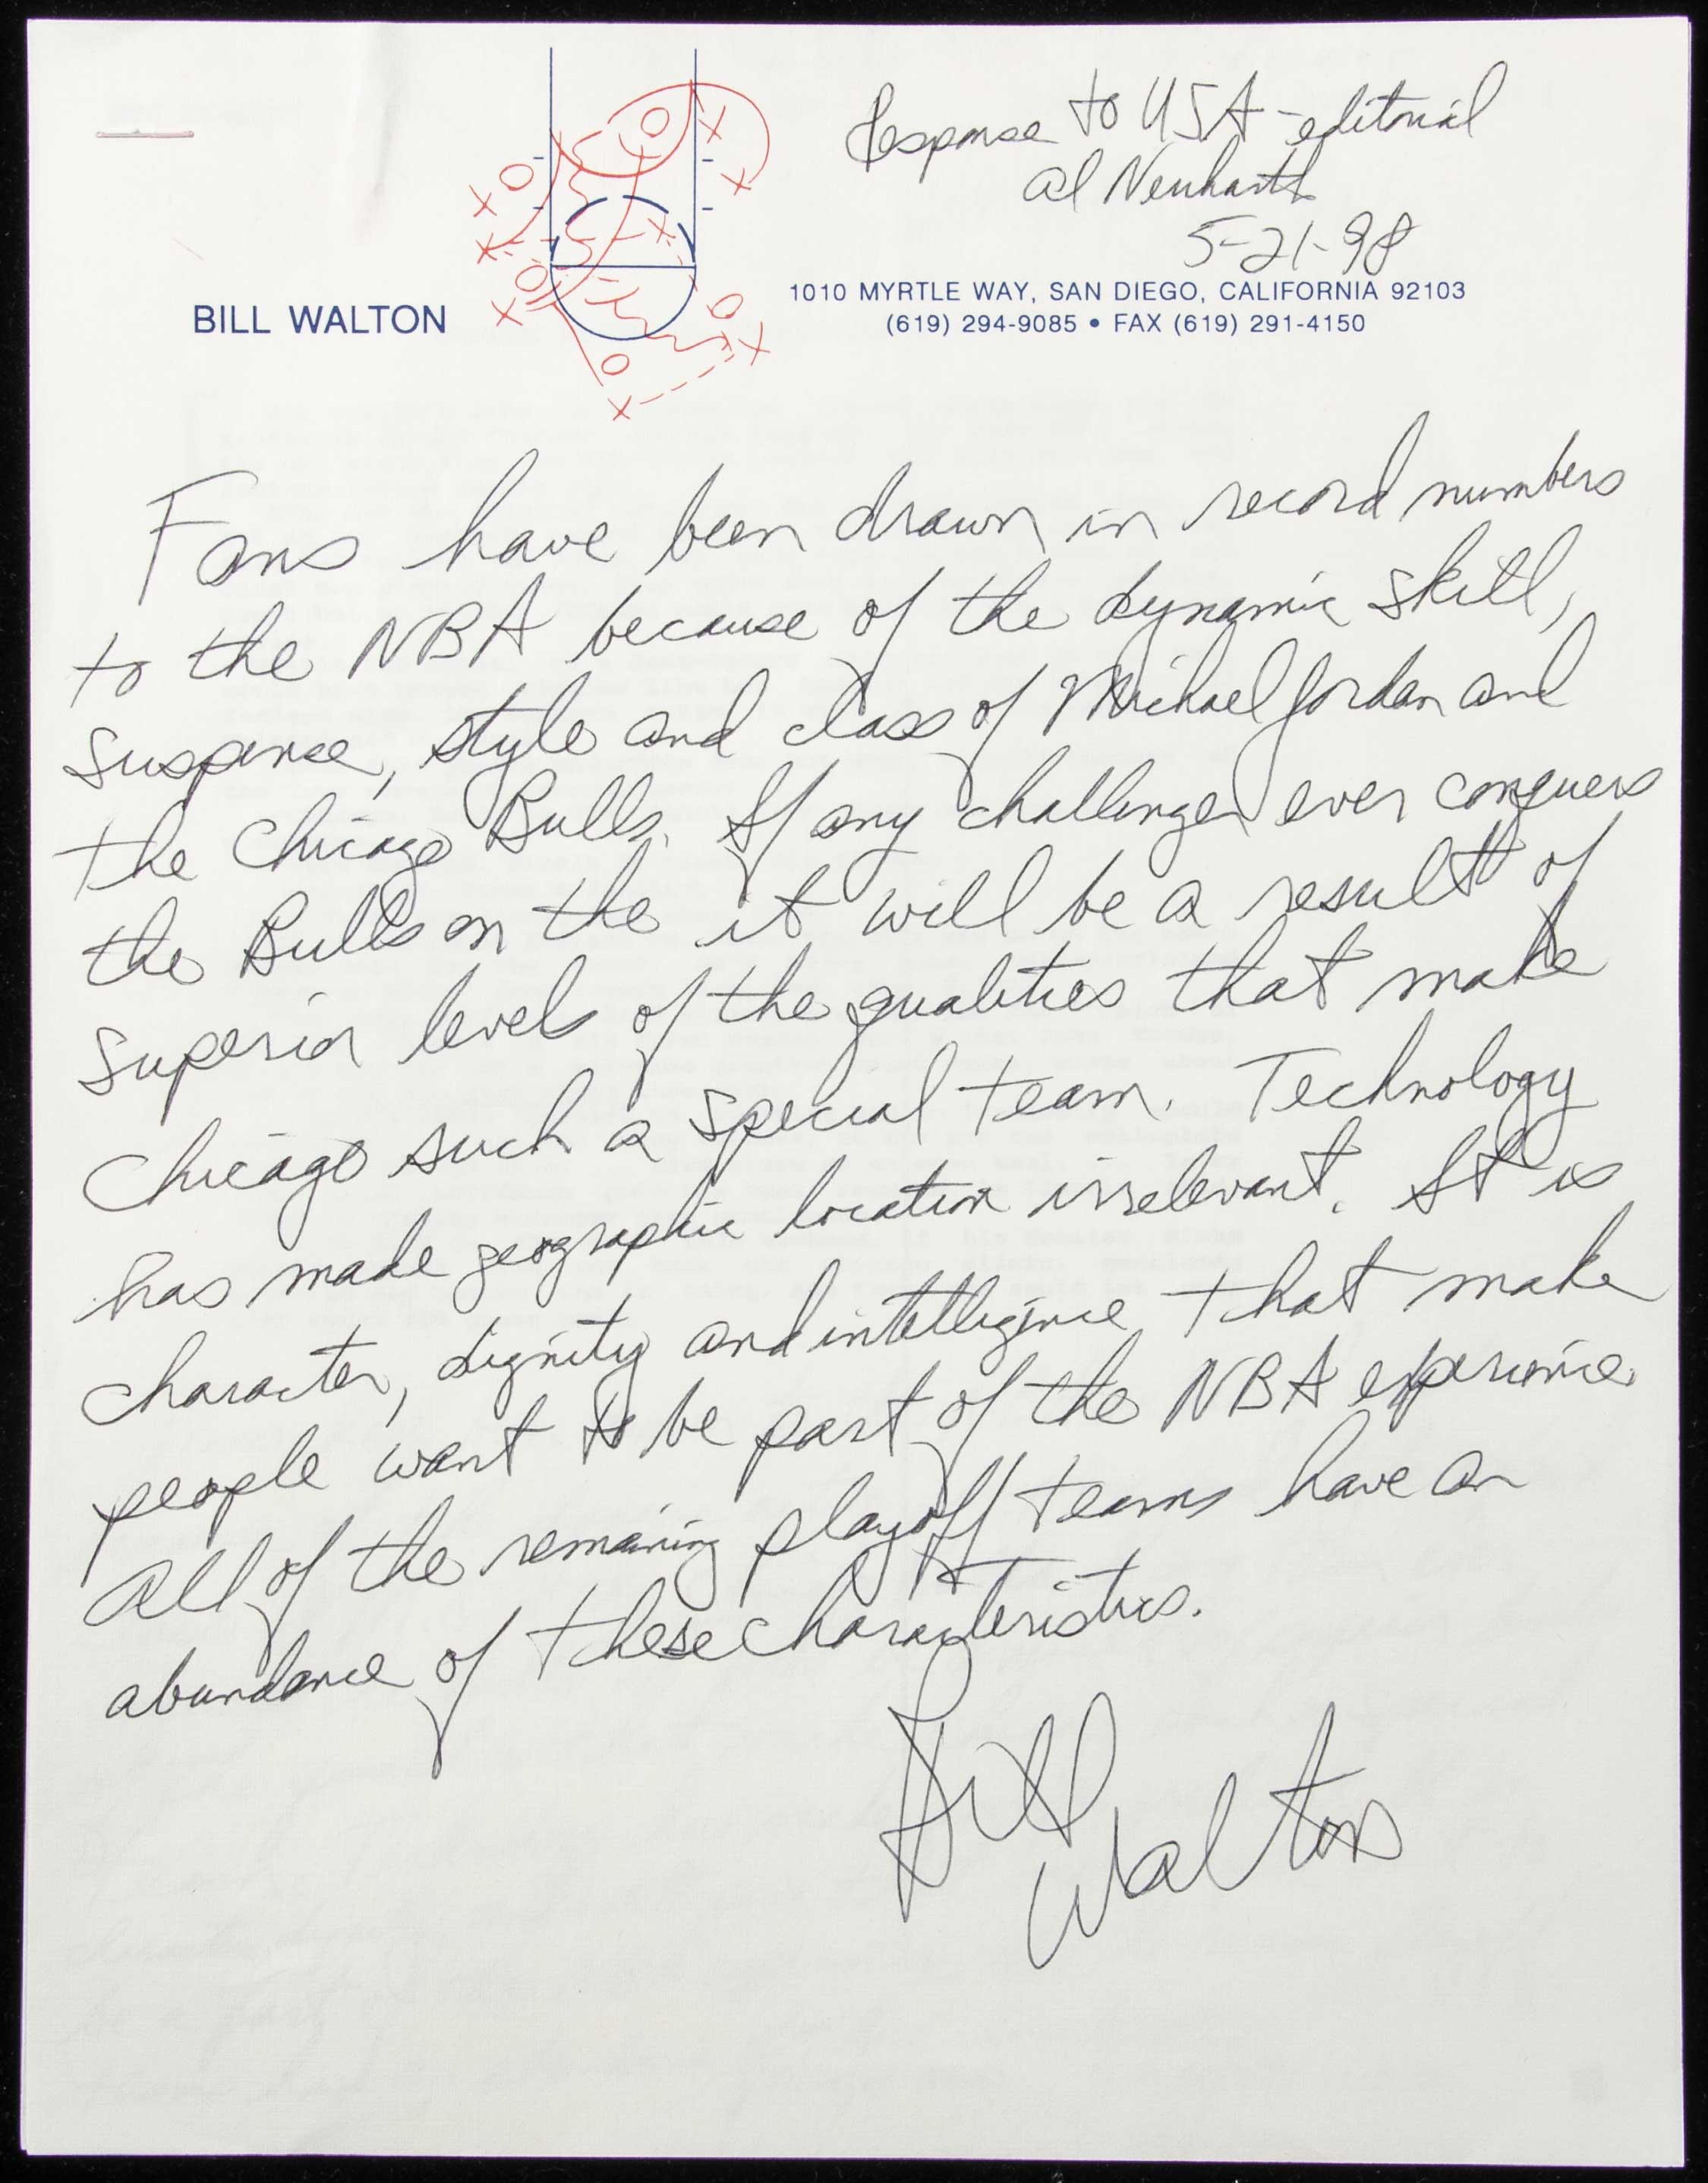 Response to USA-editorial
Al Neuharth
5-21-98
BILL WALTON
1010 MYRTLE WAY, SAN DIEGO, CALIFORNIA 92103
(619) 294-9085 • FAX (619) 291-4150
Fans have been drawn in record numbers
to the NBA because of the dynamic skill,
suspense, style and class of Michael Jordan and
the Chicago Bulls. If any challenger ever conquers
the Bulls on the it will be a result of
superior levels of the qualities that make
Chicago such a special team. Technology
has made geographic location irrelevant. It is
character, dignity and intelligence that make
people want to be part of the NBA experience.
All of the remaining playoff teams have an
abundance of these characteristics.
Bill
Walton